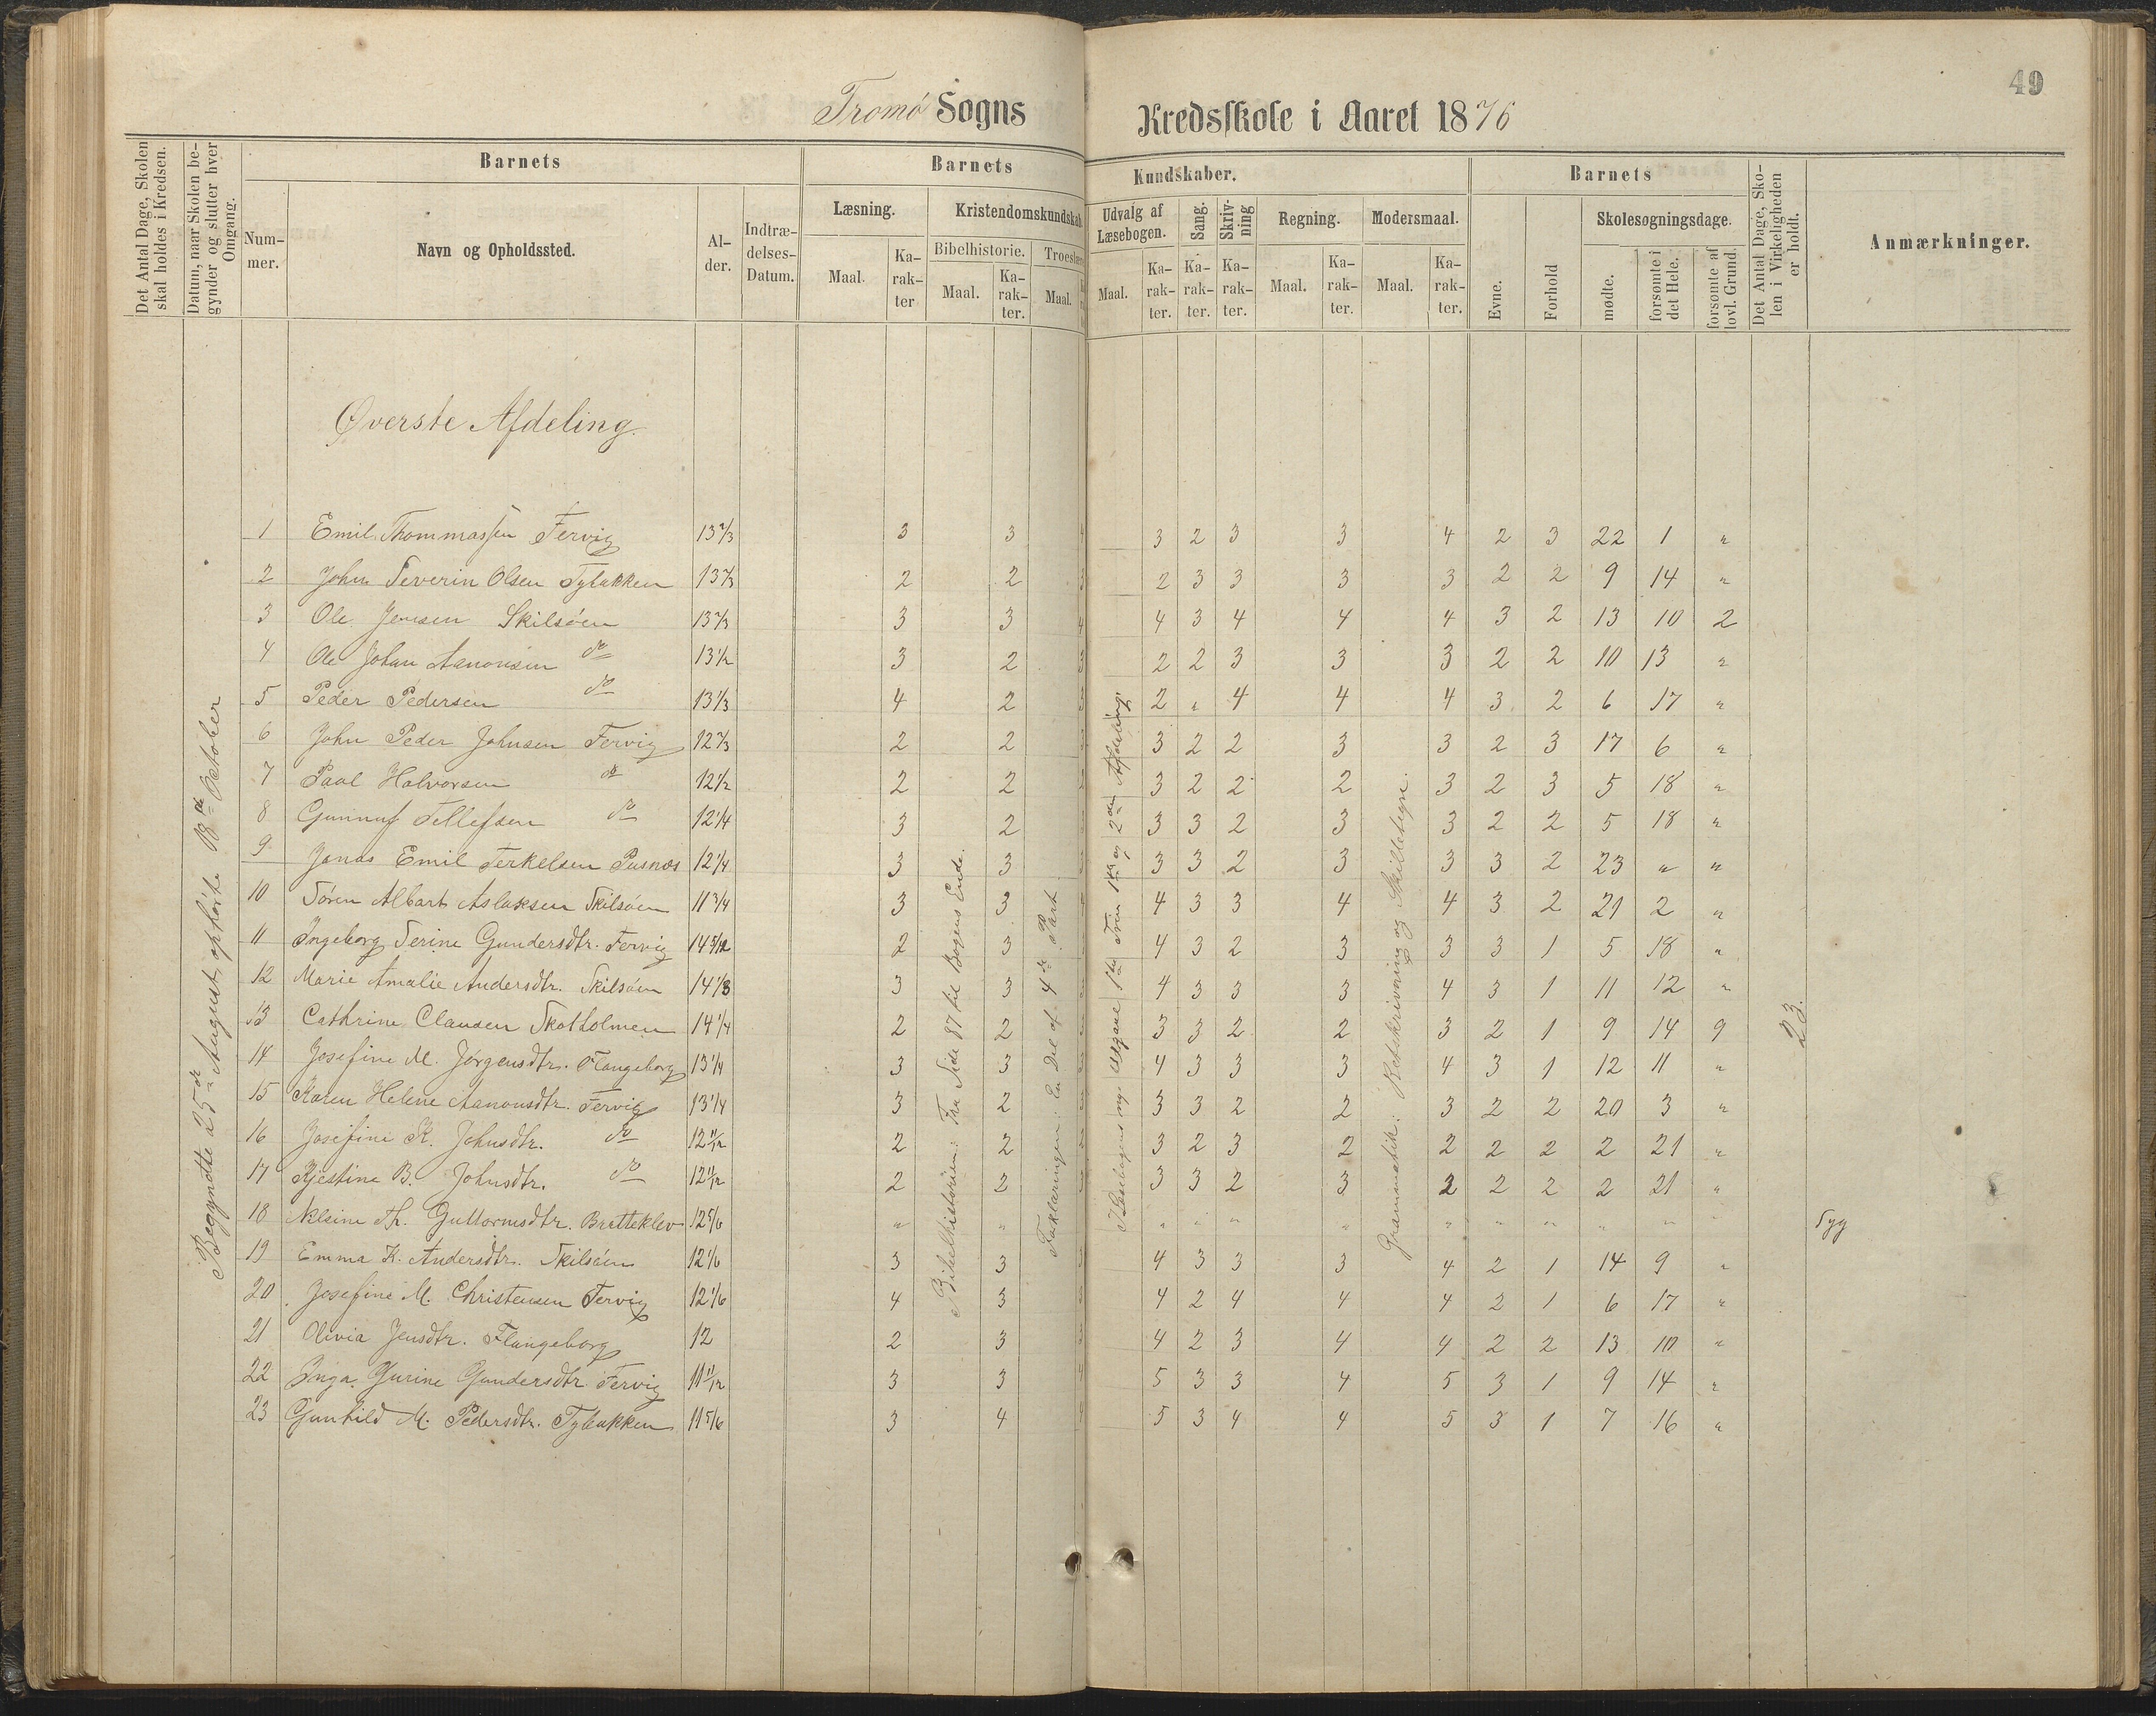 49
Tromø Sogns Kredsskole i Aaret 1876
Det Antal Dage, Skolen skal holdes i Kredsen.
Datum, naar Skolen begynder og slutter hver Omgang.
Barnets
Num-mer.
Navn og Opholdssted.
Al-der.
Indtræ-delses-Datum.
Barnets Kundskaber.
Læsning.
Maal.
Ka-rak-ter
Kristendomskundskab
Bibelhistorie.
Maal.
Ka-rak-ter.
Troeslære
Maal.
Udvalg af Læsebogen.
Maal.
Ka-rak-ter.
Sang.
Ka-rak-ter.
Skriv-ning
Ka-rak-ter.
Regning.
Maal.
Ka-rak-ter.
Modersmaal.
Maal.
Ka-rak-ter.
Barnets
Evne.
Forhold
Skolesøgningsdage.
mødte.
forsømte i det Hele.
forsømte af lovl. Grund.
Det Antal Dage, Sko-len i Virkeligheden er holdt.
Anmærkninger.
Øverste Afdeling.
Begyndte 25de August, ophørte 18de October
Bibelhistorien: Fra Side 87 til Bogens Ende.
Forklaringen: En Del af 4de Part.
Læsebogens nye Udgave 1ste Trin 1ste og 2den Afdeling.
Grammatik: Retskrivning og Skilletegn.
23.
1 Emil Thommassen Fervig 13 2/3 3 3 4 3 2 3 3 4 2 3 22 1 "
2 John Severin Olsen Tybakken 13 2/3 2 2 3 2 3 3 3 3 2 2 9 14 "
3 Ole Jensen Skilsøen 13 2/3 3 3 4 4 3 4 4 4 3 2 13 10 2
4 Ole Johan Aanonsen do 13 1/2 3 2 3 2 2 3 3 3 2 2 10 13 "
5 Peder Pedersen do 13 1/3 4 2 2 " 4 4 4 3 2 6 17 "
6 John Peder Johnsen Fervig 12 2/3 2 2 3 2 2 3 3 2 3 17 6 "
7 Paul Halvorsen do 12 1/2 2 2 3 2 2 2 3 2 3 5 18 "
8 Gunnuf Tellefsen do 12 1/4 3 2 3 3 2 3 3 2 2 5 18 "
9 Jonas Emil Terkelsen Pusnæs 12 1/4 3 3 3 3 2 3 3 3 2 23 " "
10 Søren Albart Aslaksen Skilsøen 11 3/4 3 3 4 3 3 4 4 3 2 21 2 "
11 Ingeborg Serine Gundersdtr. Fervig 14 5/12 2 3 4 3 2 3 3 3 1 5 18 "
12 Marie Amalie Andersdtr. Skilsøen 14 1/3 3 3 4 3 3 3 4 3 1 11 12 "
13 Cathrine Clausen Skotholmen 14 1/4 2 2 3 3 2 2 3 2 1 9 14 9
14 Josefine M. Jørgensdtr. Flangeborg 13 1/4 3 3 4 3 3 3 4 3 1 12 11 "
15 Karen Helene Aanonsdtr. Fervig 13 1/4 3 2 3 3 2 2 3 2 2 20 3 "
16 Josefine K. Johnsdtr. do 12 11/12 2 2 3 2 3 2 2 2 2 2 21 "
17 Kjestine B. Johnsdtr. do 12 11/12 2 2 3 3 2 3 2 2 2 2 21 "
18 Nelsine Th. Guttormsdtr. Bratteklev 12 5/6 " " " " " " " " " " " " Syg
19 Emma K. Andersdtr. Skilsøen 12 1/6 3 3 4 3 3 3 4 2 1 14 9 "
20 Josefine M. Christensen Fervig 12 1/6 4 3 4 2 4 4 4 2 1 6 17 "
21 Olivia Jensdtr. Flangeborg 12 2 3 4 2 3 4 4 2 2 13 10 "
22 Inga Gurine Gundersdtr. Fervig 11 11/12 3 3 4 5 3 3 4 5 3 1 9 14 "
23 Gunhild M. Pedersdtr. Tybakken 11 5/6 3 4 5 3 4 4 5 3 1 7 16 "